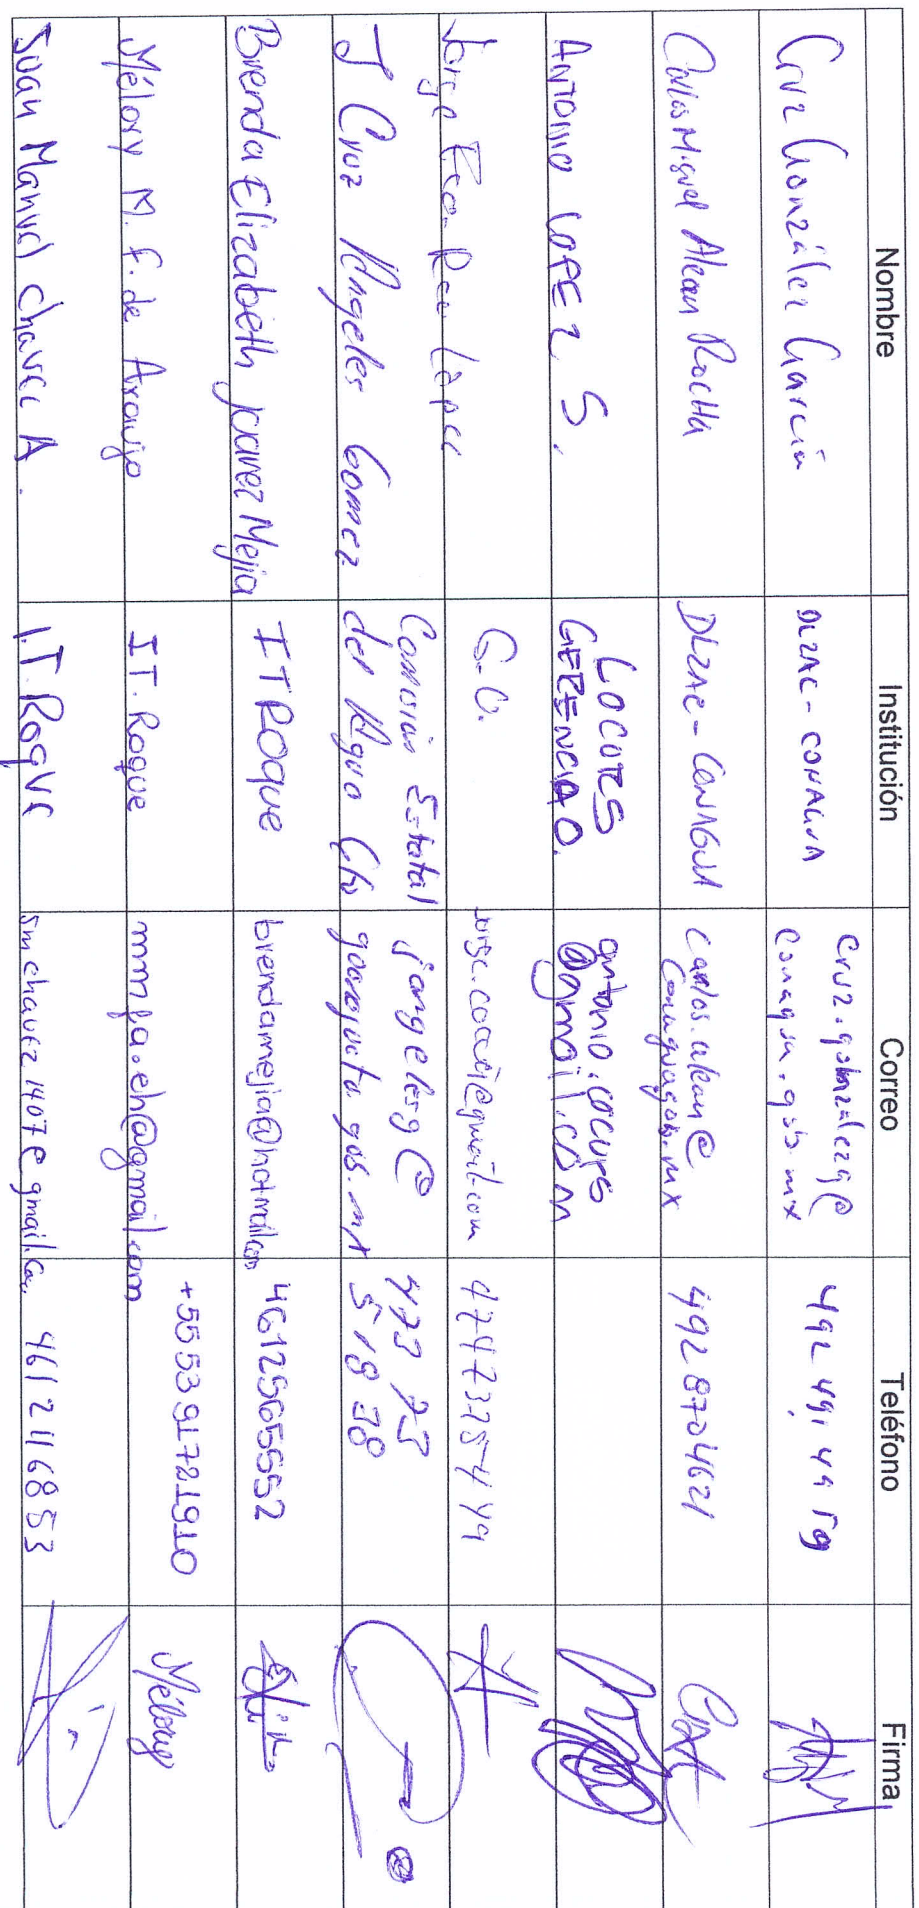 Nombre Institución Correo Teléfono Firma
Cruz González García DLZAC-CONAGUA cruz.gonzalezg@
conagua.gob.mx 492 491 49 59
Carlos Miguel Alcan Rocha DLZAC-CONAGUA carlos.alcan@
conagua.gob.mx 492 8704621
ANTONIO LOPEZ S. COCURS
GERENCIA O. antonio.cocurs
@gmail.com
Jorge Fco. Rea López G.O. @gmail.com
J Cruz Angeles Gomez Comisión Estatal
del Agua Gto jangelesg@
guanajuato.gob.mx 473 73
5 18 38
Brenda Elizabeth Juarez Mejia IT ROQUE brendamejia@hotmail.com 4612565552
Mélory M. F. de Araujo IT. Roque mmfa.eh@gmail.com +5553917721910 Mélory
Juan Manuel Chavez A. I.T. Roque jmchavez1407@gmail.com 461 2116853